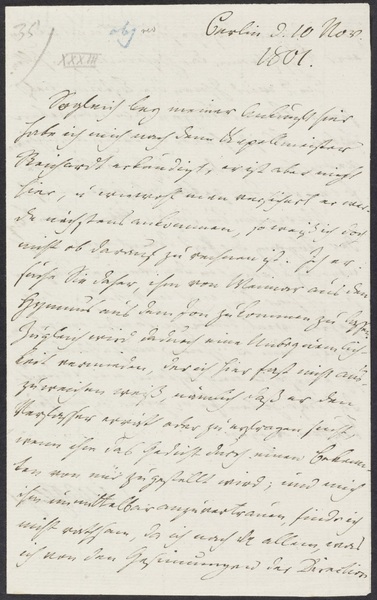 35
XXXIII
Berlin d. 10 Nov.
1801.
Sogleich bey meiner Ankunft hier
habe ich mich nach dem Kapellmeister
Reichardt erkundigt, er ist aber nicht
hier, u wiewohl man versichert er wer-
de nächstens ankommen, so weiß ich doch
nicht ob darauf zu rechnen ist. Ich er-
suche Sie daher, ihm von Weimar aus den
Hymnus aus dem Jon zukommen zu lassen.
Zugleich wird dadurch eine Unbequemlich-
keit vermieden, der ich hier fast nicht aus-
zuweichen weiß, nämlich daß er den
Verfasser erräth oder zu erfragen sucht,
wenn ihm das Gedicht durch einen Bekann-
ten von mir zugestellt wird; und mich
ihm unmittelbar anzuvertrauen, finde ich
nicht rathsam, da ich nach allem, was
ich von den Gesinnungen der Direction